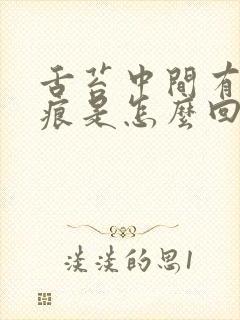 舌苔中間有
痕是怎麼回
淡淡的思1